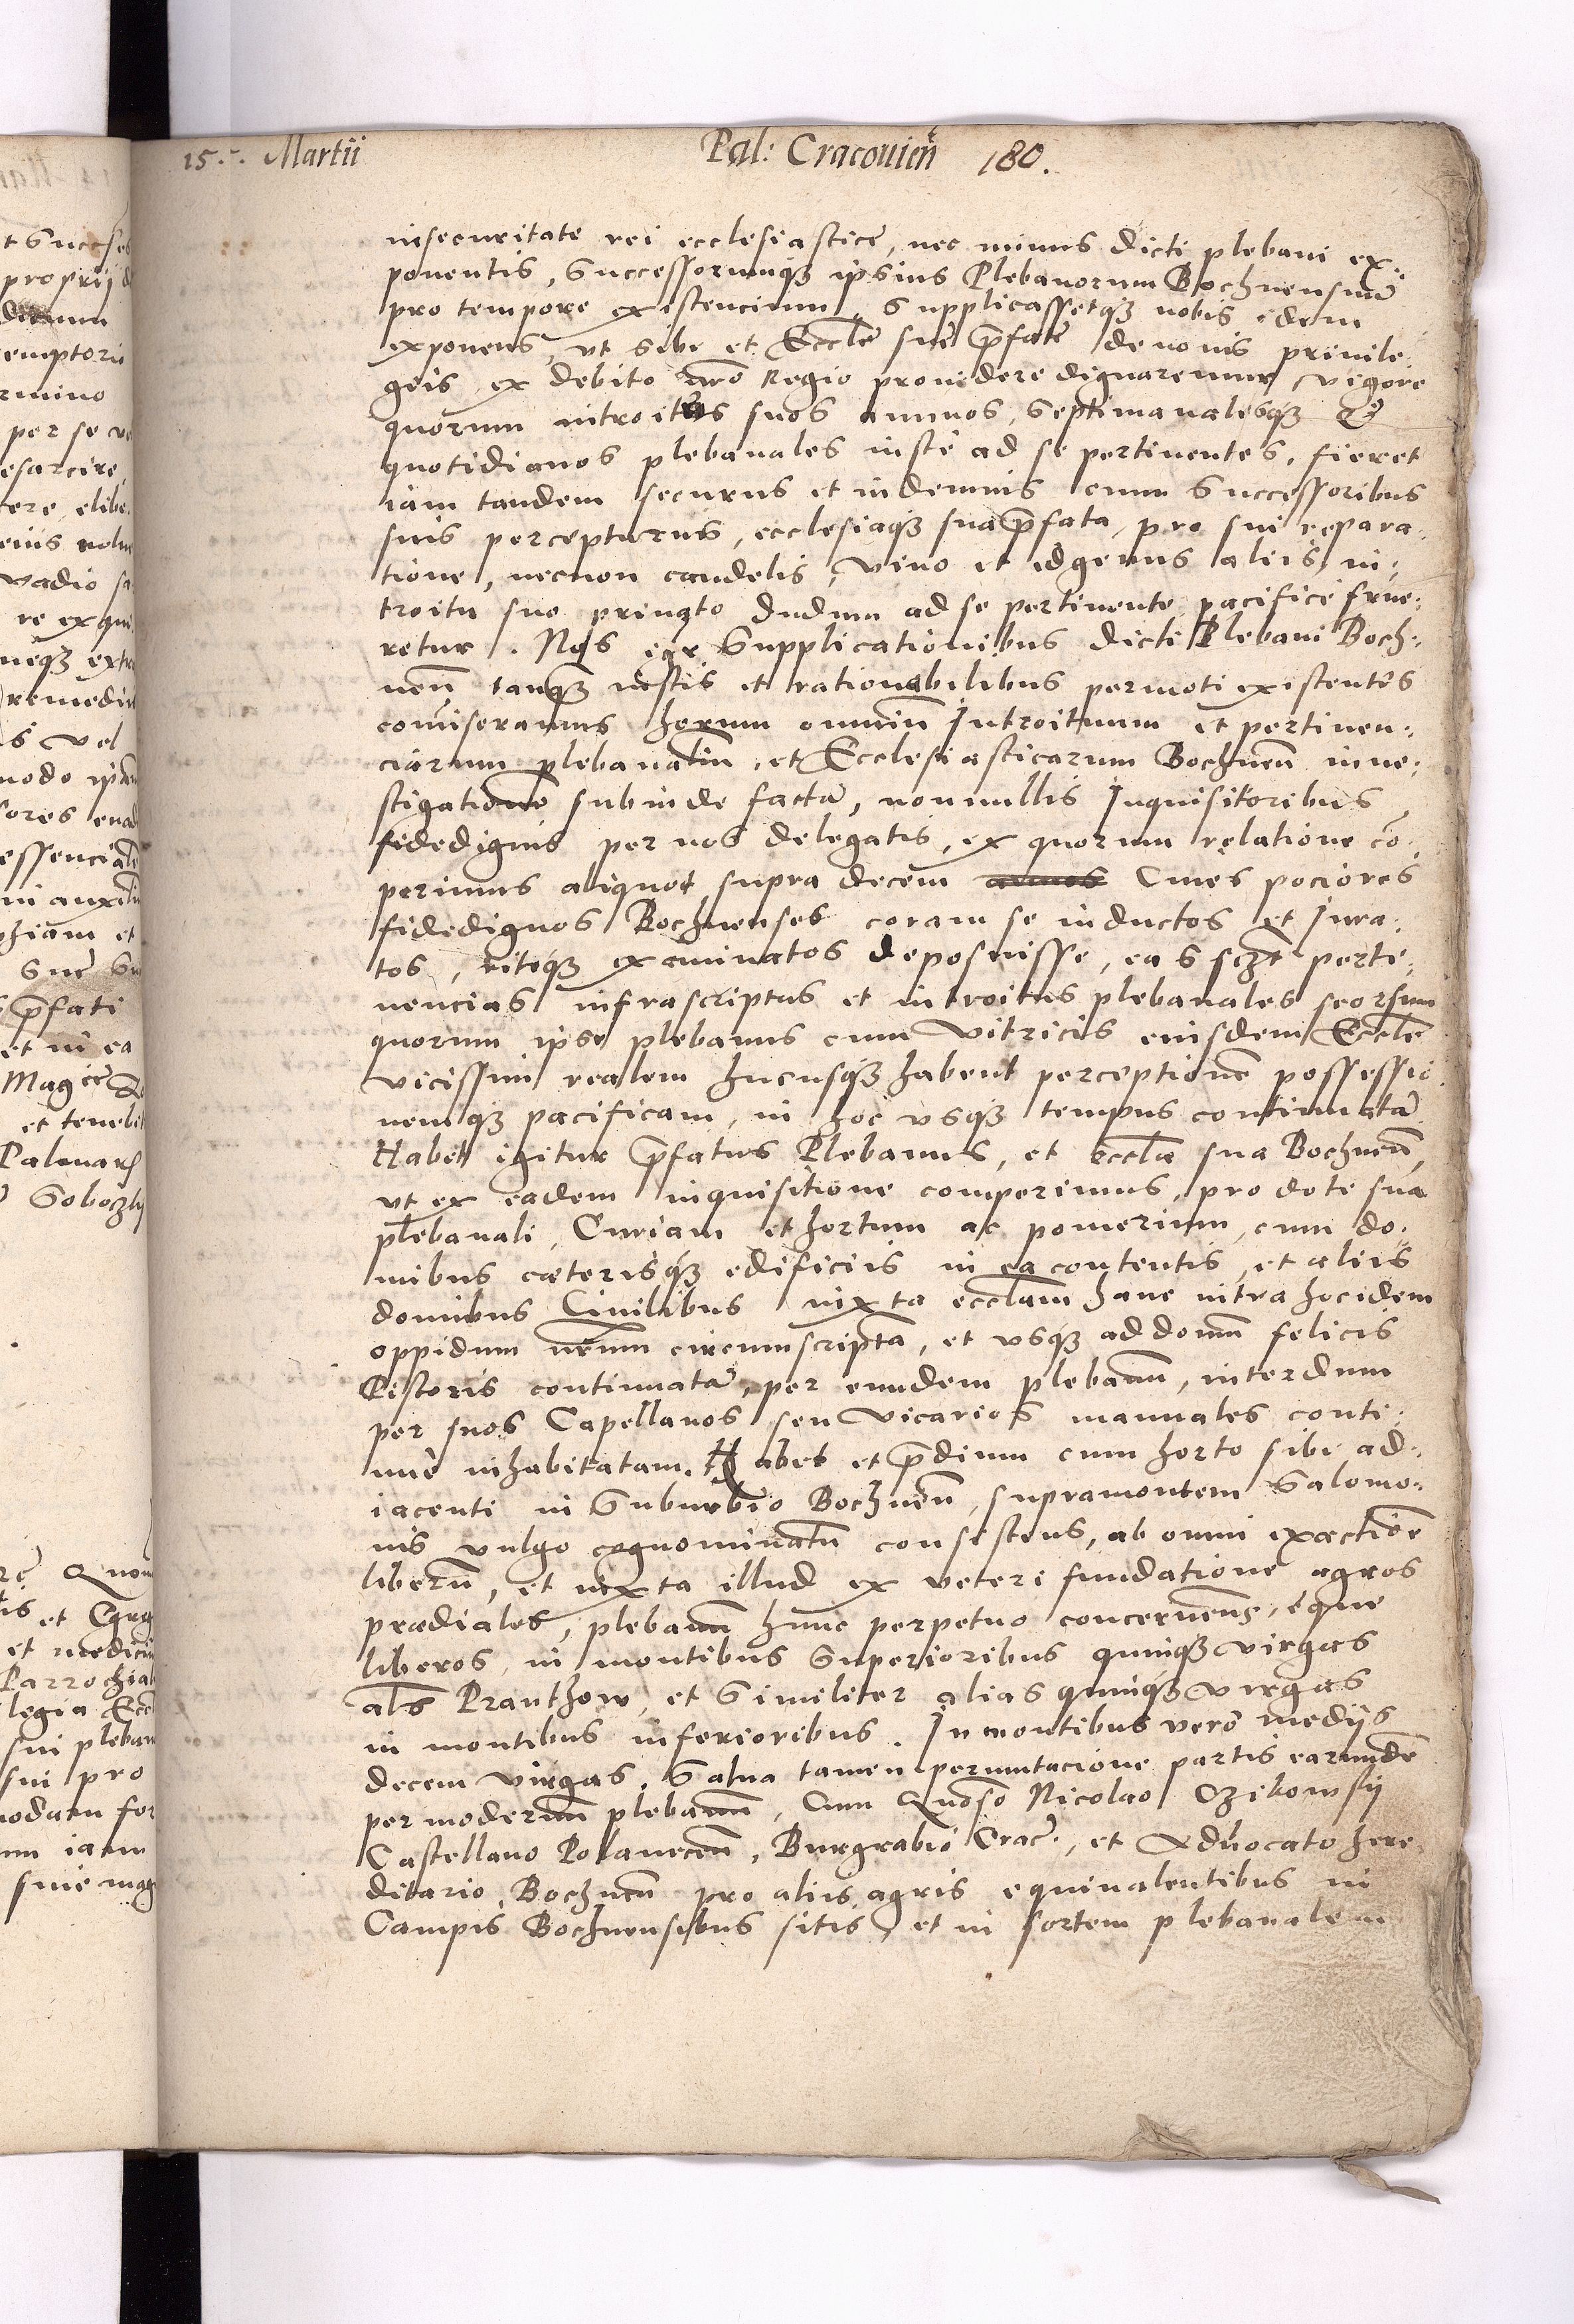 15. Martii
Pal: Cracouien̄ 180.
insecuritate rei ecclesiasticę, nec minus dicti plebani ex-
ponentis, Successorumq̨ ipsius Plebanorum Bochnensiū
pro tempore existencium, Supplicassetq̨ nobis idem
exponens, vt sibi et Ecclē suę p̄fatę de nouis priuile-
geis ex debito nr̄o Regio prouidere dignaremur, vigore
quorum introitus suos annuos, septimanalesq̨ &
quotidianos plebanales iustè ad se pertinentes, fieret
iam tandem securus et indemnis cum Successoribus
suis percepturus, ecclesiaq̨ sua p̄fata, pro sui repara-
tione, necnon candelis, vino et id genus aliis, in-
troitu suo priuato dudum ad se pertinente pacificè frue-
retur. Nos igr̄ Supplicationibus dicti Plebani Boch-
nen̄ tanq̨ iustis et rationabilibus permoti existentes
com̄iseramus horum omniū Introituum et pertinen-
ciarum plebanaliū et Ecclesiasticarum Bochnen̄ inue-
stigationē subinde factā, nonnullis Inquisitoribus
fidedignis per nos delegatis, ex quorum relatione cō-
perimus aliquot supra decem annos Ciues pociores
fidedignos Bochnenses coram se inductos et Iura-
tos, ritèq̨ examinatos deposuisse, eas sczt perti-
nencias infrascriptas et introitus plebanales seorsum
quorum ipse plebanus cum Vitricis eiusdem Ecclē
vicissim realem hucusq̨ habent perceptionē possessio
nemq̨ pacificam, in hoc vsq̨ tempus continuatā
Habet igitur p̄fatus Plebanus, et eccl̄a sua Bochnen̄,
vt ex eadem inquisitione comperimus, pro dote sua
plebanali, Curiam et hortum ac pomerium, cum do-
mibus cæterisq̨ edificiis in ea contentis, et aliis
domibus Ciuilibus iuxta eccl̄am hanc intra hoc idem
oppidum nr̄um circumscriptā, et vsq̨ ad domū felicis
Pistoris continuatā, per eundem plebanū, interdum
per suos Capellanos seu Vicarios manuales conti-
nuè inhabitatam. Habet et p̄dium cum horto sibi ad-
iacenti in Suburbio Bochnen̄, supra montem Salomo-
nis vulgo cognominatū consistens, ab omni exactiōe
liberū, et iuxta illud ex veteri fundatione agros
prædiales, plebanū hunc perpetuo concernen̄, eque
liberos, in montibus Superioribus quinq̨ virgas
al̄s Pranthow, et similiter alias quinq̨ virgas
in montibus inferioribus. In montibus verò medijs
decem virgas, Salua tamen permutacione partis earundē
per modernū plebanū, Cum Gnōso Nicolao Czikowsky
Castellano Polanecen̄, Burgrabio Crac̄., et Aduocato here
ditario Bochnen̄ pro aliis agris equiualentibus in
Campis Bochnensibus sitis, et in sortem plebanalem